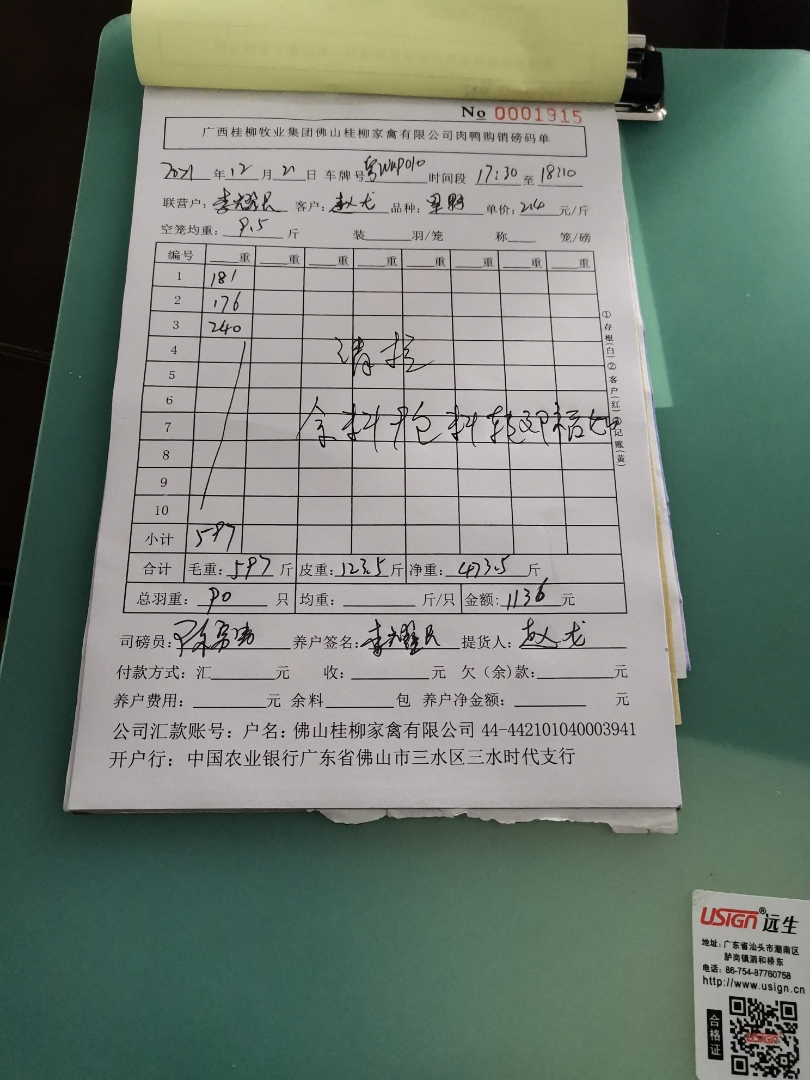 No 0001915
广西桂柳牧业集团佛山桂柳家禽有限公司肉鸭购销磅码单
2021年12月21日 车牌号 粤WWP010 时间段 17:30至18:10
联营户: 李耀民 客户: 赵龙 品种: 单价: 2.4元/斤
空笼均重: 9.5斤 装 羽/笼 称 笼/磅
编号 重 重 重 重 重 重 重 重
1 181
2 176
3 240
4 清栏
5
6
7 余料 包料转邓
8
9
10
小计 597
合计 毛重: 597斤 皮重: 123.5斤 净重: 473.5斤
总羽重: 90只 均重: 斤/只 金额: 1136元
司磅员: 养户签名: 李耀民 提货人: 赵龙
付款方式: 汇 元 收: 元 欠(余)款: 元
养户费用: 元 余料 包 养户净金额: 元
公司汇款账号: 户名: 佛山桂柳家禽有限公司 44-442101040003941
开户行: 中国农业银行广东省佛山市三水区三水时代支行
①存根(白)②客户(红)③记账(黄)
USIGN® 远生
地址: 广东省汕头市潮南区
胪岗镇泗和桥东
电话: 86-754-87760758
http://www.usign.cn
合格证
USIGN